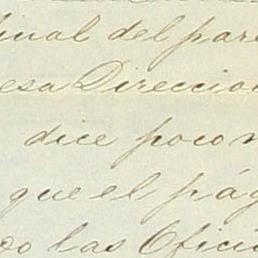 final del pare
esa Direccio
dice poco n
que el pág
do las Ofici